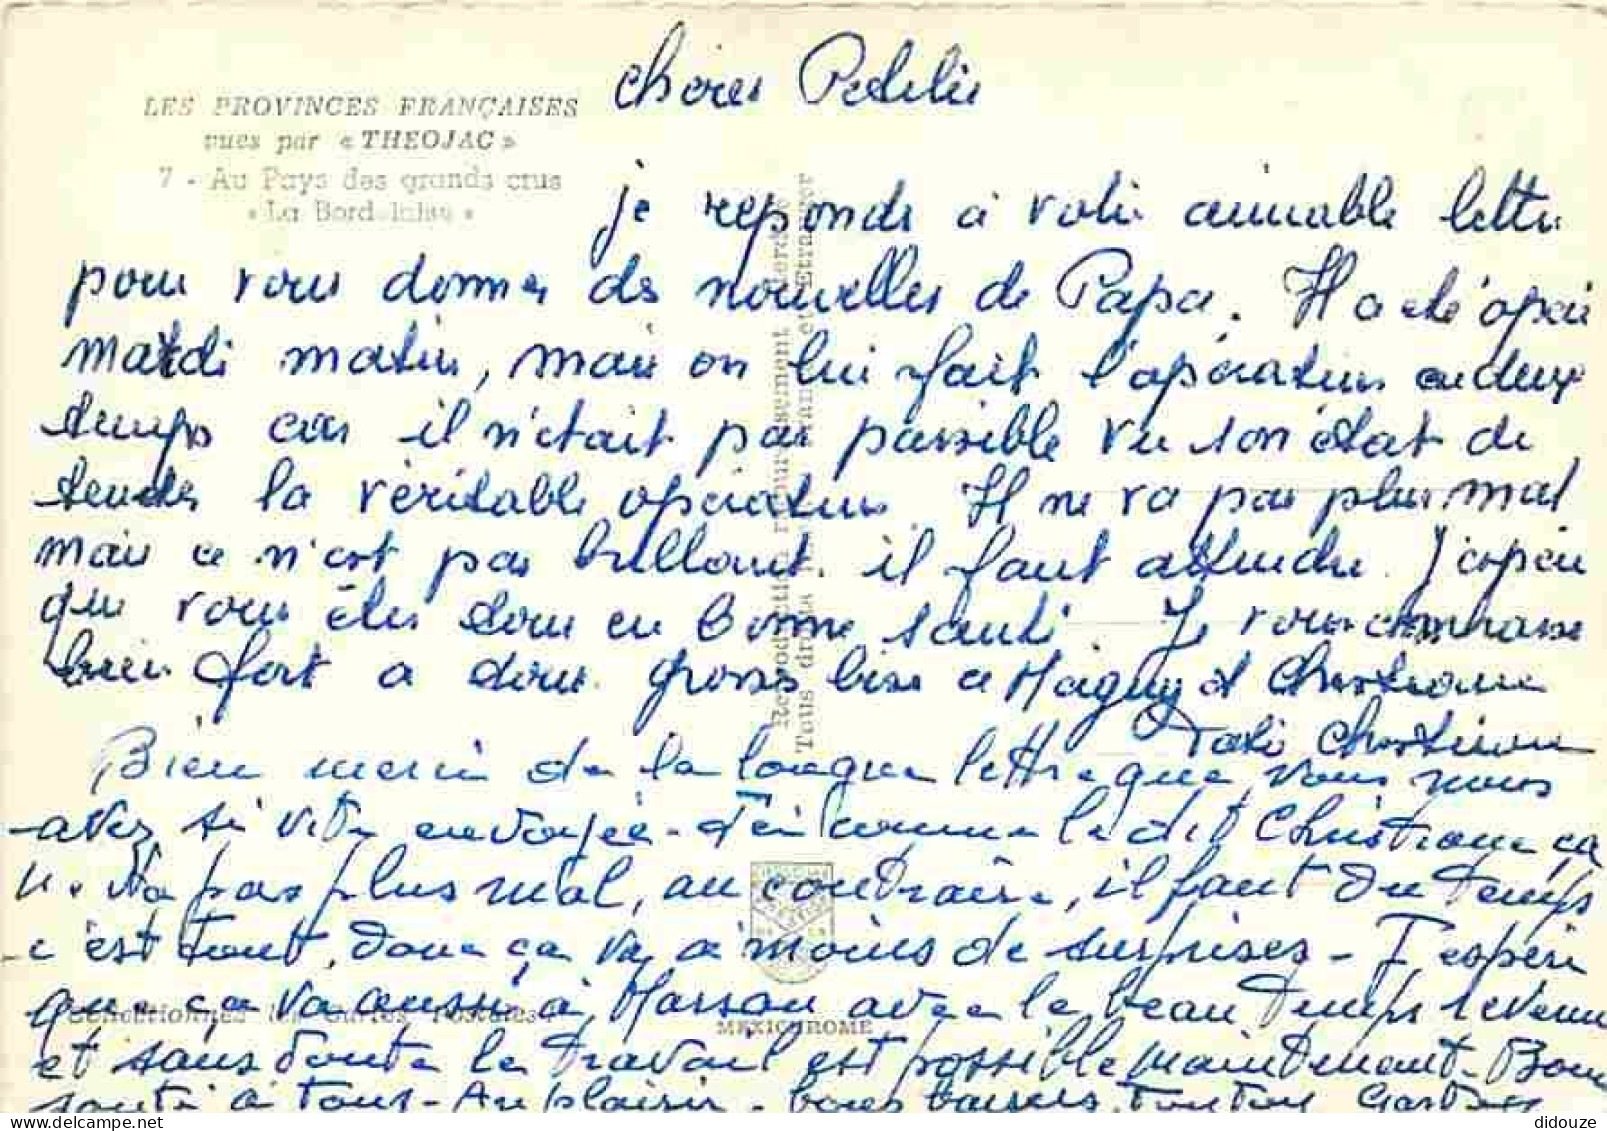 LES PROVINCES FRANÇAISES
vues par « THEOJAC »
7 - Au Pays des grands crus
« La Bordelaise »
Chères
je reponds à votre aimable lettre
pour vous donner des nouvelles de Papa. Il a été opéré
mardi matin, mais on lui fait l'opération en deux
temps car il n'était pas possible vu son état de
tenter la véritable opération. Il ne va pas plus mal
mais ce n'est pas brillant. il faut attendre. J'espère
que vous êtes tous en bonne santé. Je vous embrasse
bien fort a tous. grosse bise a Maiguy et Christiane
Tati Christiane
Bien merci de la longue lettre que vous nous
avez si vite envoyée - comme le dit Christiane ça
n. Va pas plus mal, au contraire, il faut du temps
c'est tout, donc ça va a moins de surprises - J'espère
que ça va aussi à Marsan avec le beau temps revenu
et sans doute le travail est possible maintenant - Bonne
santé à tous - Au plaisir - bons baisers, Tonton Gaston
Collectionnez les Cartes Postales
MEXICHROME
Reproduction rigoureusement interdite
Tous droits France et Etranger
didouze